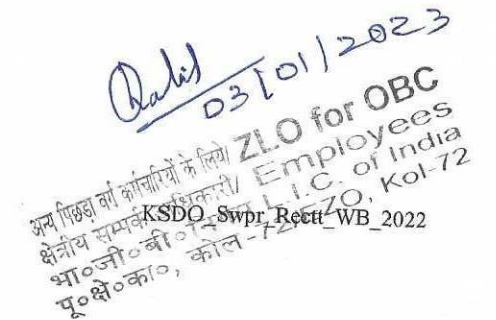 03/01/2023
अन्य पिछड़ा वर्ग कर्मचारियों के लिये/ ZLO for OBC
क्षेत्रीय सम्पर्क अधिकारी/ Employees
भा०जी०बी० L.I.C. of India
पू०क्षे०का०, कोल-72/EZO, Kol-72
KSDO_Swpr_Rectt_WB_2022